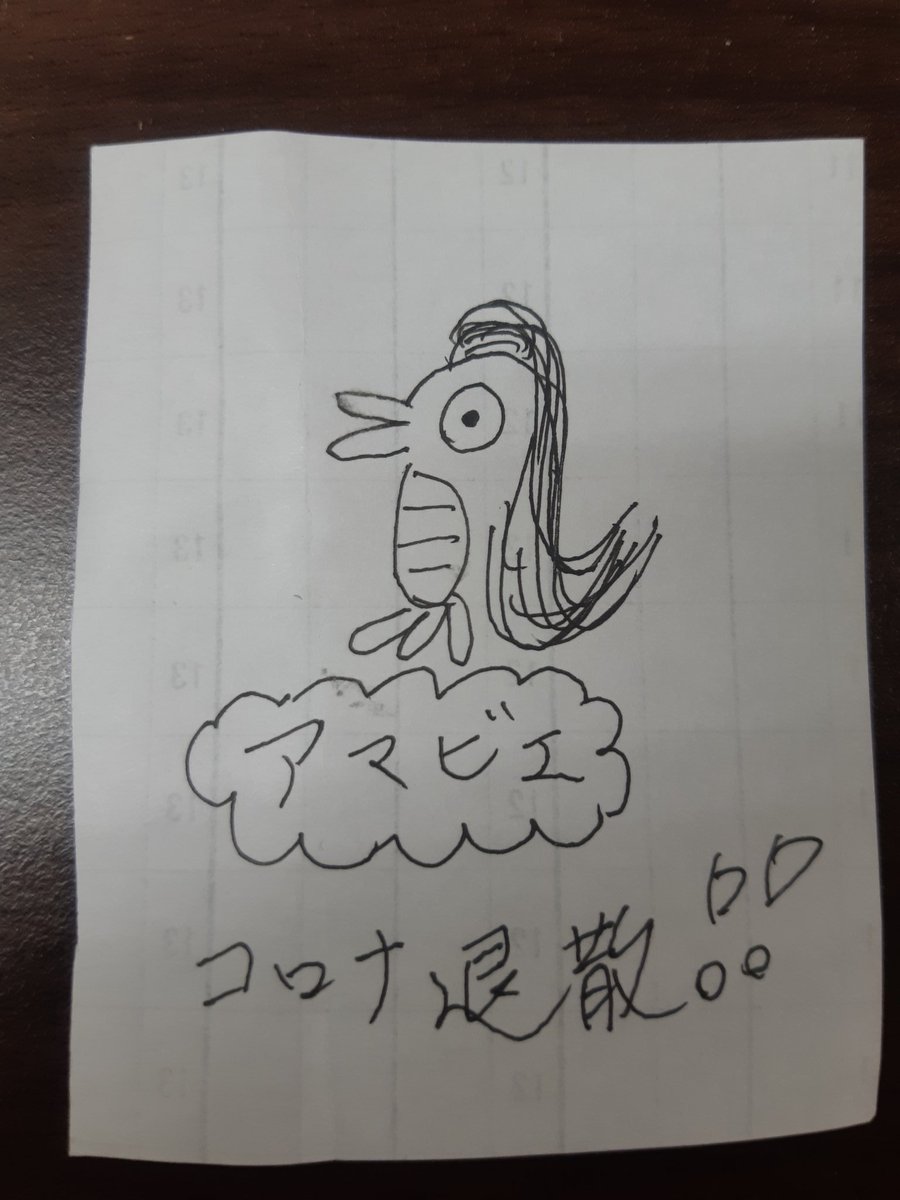 アマビエ
コロナ退散!!